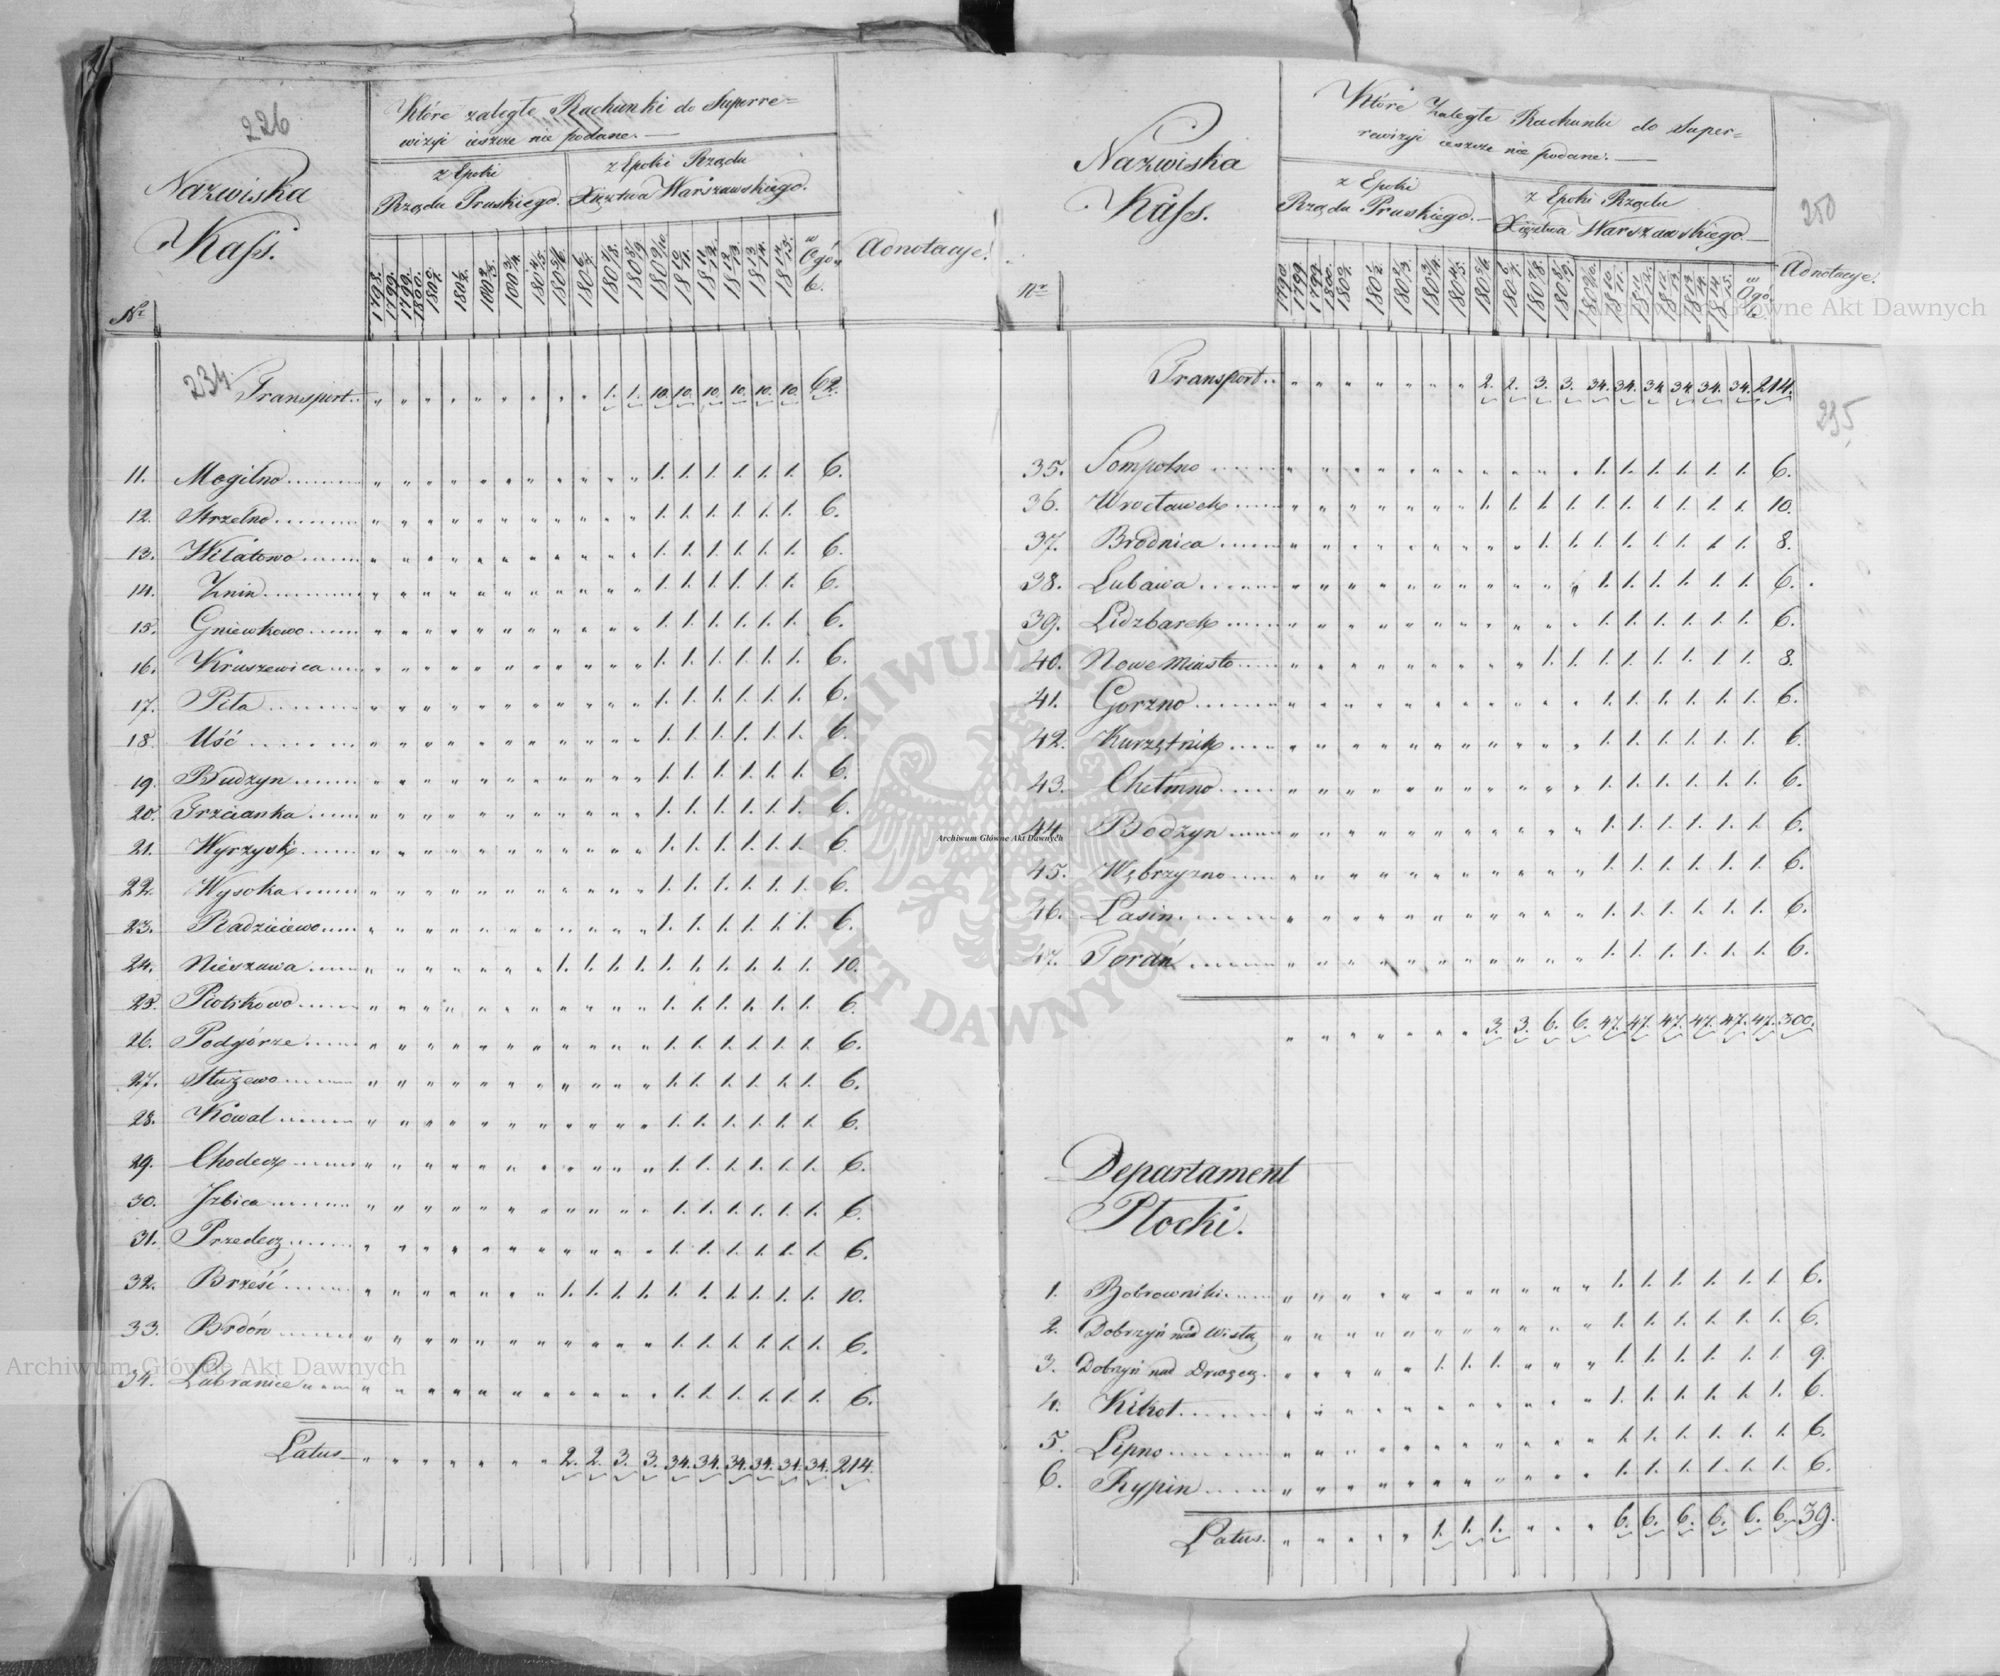 226
Nazwiska
Kass.
Nr
Które zaległe Rachunki do Superre=
wizyi ieszcze nie podane.
z Epoki
Rządu Pruskiego.
z Epoki Rządu
Xięztwa Warszawskiego.
Adnotacye.
234
Transport.. " " " " " " " " " 1. 1. 10. 10. 10. 10. 10. 10. 62.
11. Mogilno 1. 1. 1. 1. 1. 1. 6.
12. Strzelno 1. 1. 1. 1. 1. 1. 6.
13. Wilatowo 1. 1. 1. 1. 1. 1. 6.
14. Żnin 1. 1. 1. 1. 1. 1. 6.
15. Gniewkowo 1. 1. 1. 1. 1. 1. 6.
16. Kruszewica 1. 1. 1. 1. 1. 1. 6.
17. Piła 1. 1. 1. 1. 1. 1. 6.
18. Uść 1. 1. 1. 1. 1. 1. 6.
19. Budzyn 1. 1. 1. 1. 1. 1. 6.
20. Trzcianka 1. 1. 1. 1. 1. 1. 6.
21. Wyrzysk 1. 1. 1. 1. 1. 1. 6.
22. Wysoka 1. 1. 1. 1. 1. 1. 6.
23. Radzieiewo 1. 1. 1. 1. 1. 1. 6.
24. Nieszawa 1. 1. 1. 1. 1. 1. 1. 1. 1. 1. 10.
25. Piotrkowo 1. 1. 1. 1. 1. 1. 6.
26. Podgórze 1. 1. 1. 1. 1. 1. 6.
27. Służewo 1. 1. 1. 1. 1. 1. 6.
28. Kowal 1. 1. 1. 1. 1. 1. 6.
29. Chodecz 1. 1. 1. 1. 1. 1. 6.
30. Izbica 1. 1. 1. 1. 1. 1. 6.
31. Przedecz 1. 1. 1. 1. 1. 1. 6.
32. Brześć 1. 1. 1. 1. 1. 1. 1. 1. 1. 1. 10.
33. Brdón 1. 1. 1. 1. 1. 1. 6.
34. Lubranice 1. 1. 1. 1. 1. 1. 6.
Latus 2. 2. 3. 3. 34. 34. 34. 34. 34. 34. 214.
Nazwiska
Kass.
Nr
Które Zaległe Rachunki do Super=
rewizyi ieszcze nie podane.
z Epoki
Rządu Pruskiego.
z Epoki Rządu
Xięztwa Warszawskiego.
250
Adnotacye.
Transport.. 2. 2. 3. 3. 34. 34. 34. 34. 34. 34. 214.
295
35. Sompolno 1. 1. 1. 1. 1. 1. 6.
36. Wrocławek 1. 1. 1. 1. 1. 1. 1. 1. 1. 1. 10.
37. Brodnica 1. 1. 1. 1. 1. 1. 1. 1. 8.
38. Lubawa 1. 1. 1. 1. 1. 1. 6.
39. Lidzbarek 1. 1. 1. 1. 1. 1. 6.
40. Nowe Miasto 1. 1. 1. 1. 1. 1. 1. 1. 8.
41. Gorzno 1. 1. 1. 1. 1. 1. 6.
42. Kurzętnik 1. 1. 1. 1. 1. 1. 6.
43. Chełmno 1. 1. 1. 1. 1. 1. 6.
44. Bodzyn 1. 1. 1. 1. 1. 1. 6.
45. Wębrzyzno 1. 1. 1. 1. 1. 1. 6.
46. Lasin 1. 1. 1. 1. 1. 1. 6.
47. Fordń 1. 1. 1. 1. 1. 1. 6.
3. 3. 6. 6. 47. 47. 47. 47. 47. 47. 300.
Departament
Płocki.
1. Bobrowniki 1. 1. 1. 1. 1. 1. 6.
2. Dobrzyń nad Wisłą 1. 1. 1. 1. 1. 1. 6.
3. Dobrzyń nad Drwęcą 1. 1. 1. 1. 1. 1. 1. 1. 1. 9.
4. Kikoł 1. 1. 1. 1. 1. 1. 6.
5. Lipno 1. 1. 1. 1. 1. 1. 6.
6. Rypin 1. 1. 1. 1. 1. 1. 6.
Latus. 1. 1. 1. 6. 6. 6. 6. 6. 6. 39.
Archiwum Główne Akt Dawnych
ARCHIWUM GŁÓWNE AKT DAWNYCH